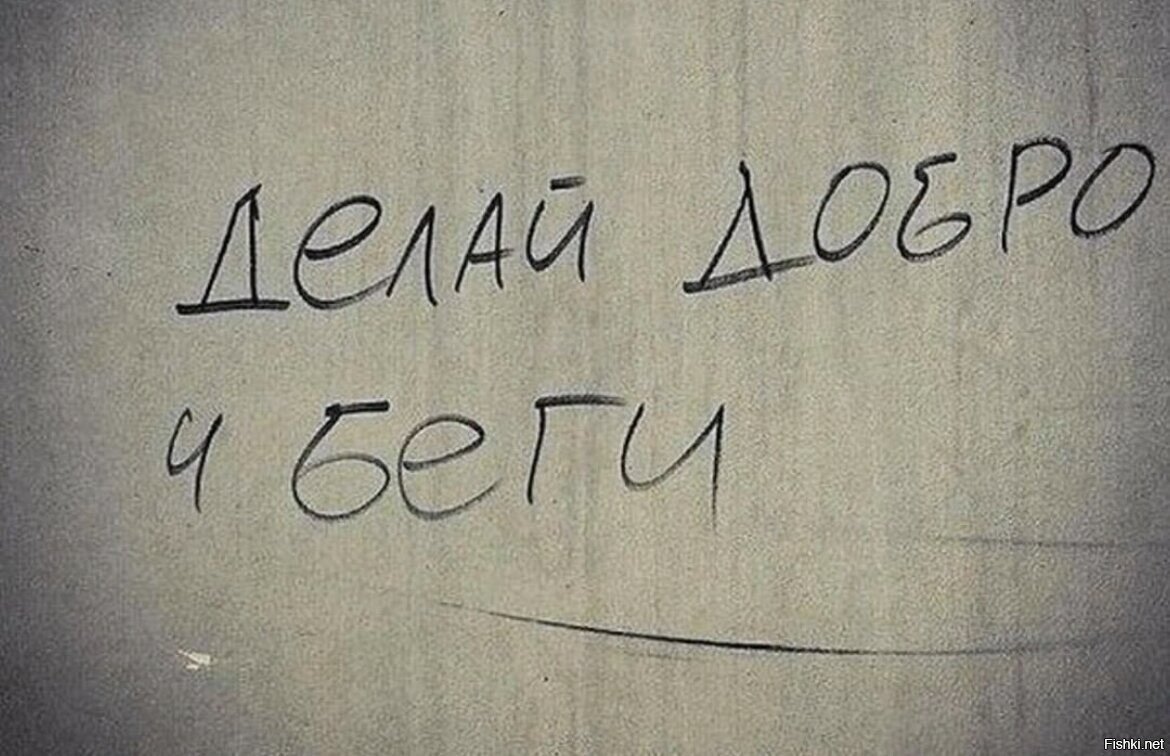 ДЕЛАЙ ДОБРО
И БЕГИ
Fishki.net